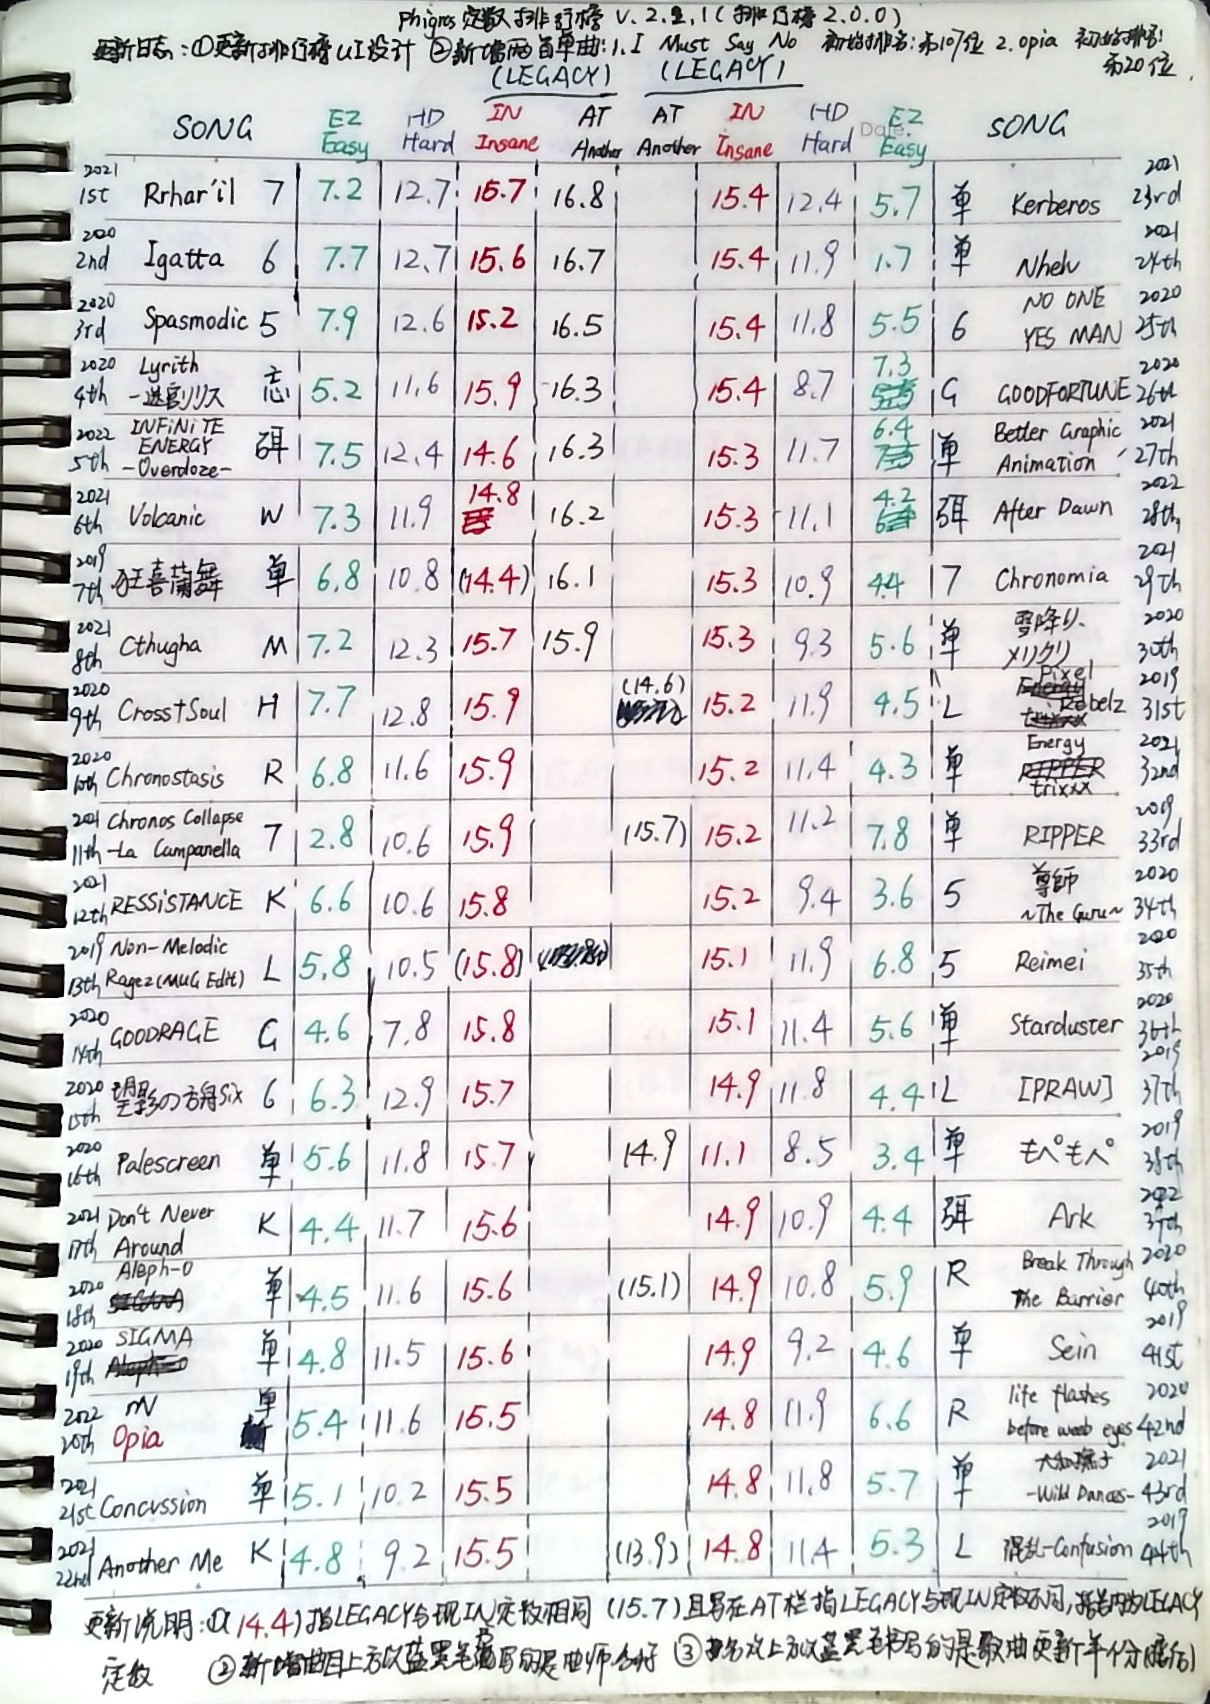 Phigros 定数排行榜 V.2.2.1(排行榜2.0.0)
更新日志:①更新排行榜UI设计 ②新增两首单曲:1.I Must Say No 初始排名:第107位 2.Opia 初始排名:
第20位.
(LEGACY) (LEGACY)
SONG EZ Easy HD Hard IN Insane AT Another AT Another IN Insane HD Hard EZ Easy SONG
2021 1st Rrhar'il 7 7.2 12.7 15.7 16.8 15.4 12.4 5.7 单 Kerberos 2021 23rd
2020 2nd Igatta 6 7.7 12.7 15.6 16.7 15.4 11.9 1.7 单 Nhelv 2021 24th
2020 3rd Spasmodic 5 7.9 12.6 15.2 16.5 15.4 11.8 5.5 6 NO ONE YES MAN 2020 25th
2020 4th Lyrith -迷宮リリス 忘 5.2 11.6 15.9 16.3 15.4 8.7 7.3 G GOODFORTUNE 2020 26th
2022 5th INFiNiTE ENERGY -Overdoze- 弭 7.5 12.4 14.6 16.3 15.3 11.7 6.4 单 Better Graphic Animation 2021 27th
2021 6th Volcanic W 7.3 11.9 14.8 16.2 15.3 11.1 4.2 弭 After Dawn 2022 28th
2019 7th 狂喜蘭舞 单 6.8 10.8 (14.4) 16.1 15.3 10.9 4.4 7 Chronomia 2021 29th
2021 8th Cthugha M 7.2 12.3 15.7 15.9 15.3 9.3 5.6 单 雪降り、メリクリ 2020 30th
2020 9th Cross†Soul H 7.7 12.8 15.9 (14.6) 15.2 11.9 4.5 L Pixel Rebelz 2019 31st
2020 10th Chronostasis R 6.8 11.6 15.9 15.2 11.4 4.3 单 Energy trixxx 2021 32nd
2021 11th Chronos Collapse -La Campanella 7 2.8 10.6 15.9 (15.7) 15.2 11.2 7.8 单 RIPPER 2019 33rd
2021 12th RESSiSTANCE K 6.6 10.6 15.8 15.2 9.4 3.6 5 尊師 ~The Guru~ 2020 34th
2019 13th Non-Melodic Ragez(MUG Edit) L 5.8 10.5 (15.8) 15.1 11.9 6.8 5 Reimei 2020 35th
2020 14th GOODRAGE G 4.6 7.8 15.8 15.1 11.4 5.6 单 Starduster 2020 36th
2020 15th 望影の方舟Six 6 6.3 12.9 15.7 14.9 11.8 4.4 L [PRAW] 2019 37th
2020 16th Palescreen 单 5.6 11.8 15.7 14.9 11.1 8.5 3.4 单 もぺもぺ 2019 38th
2021 17th Don't Never Around K 4.4 11.7 15.6 14.9 10.9 4.4 弭 Ark 2022 39th
2020 18th Aleph-0 单 4.5 11.6 15.6 (15.1) 14.9 10.8 5.9 R Break Through The Barrier 2020 40th
2020 19th SIGMA 单 4.8 11.5 15.6 14.9 9.2 4.6 单 Sein 2019 41st
2022 20th Opia 单 5.4 11.6 15.5 14.8 11.9 6.6 R life flashes before weeb eyes 2020 42nd
2021 21st Concvssion 单 5.1 10.2 15.5 14.8 11.8 5.7 单 大和撫子 -Wild Dances- 2021 43rd
2021 22nd Another Me K 4.8 9.2 15.5 (13.9) 14.8 11.4 5.3 L 混乱-Confusion 2019 44th
更新说明:①(14.4)指LEGACY与现IN定数相同 (15.7)且写在AT栏指LEGACY与现IN定数不同,括号内为LEGACY
定数 ②新增曲目上方以蓝黑笔书写的是曲师名称 ③排名次上方以蓝黑笔书写的是歌曲更新年份